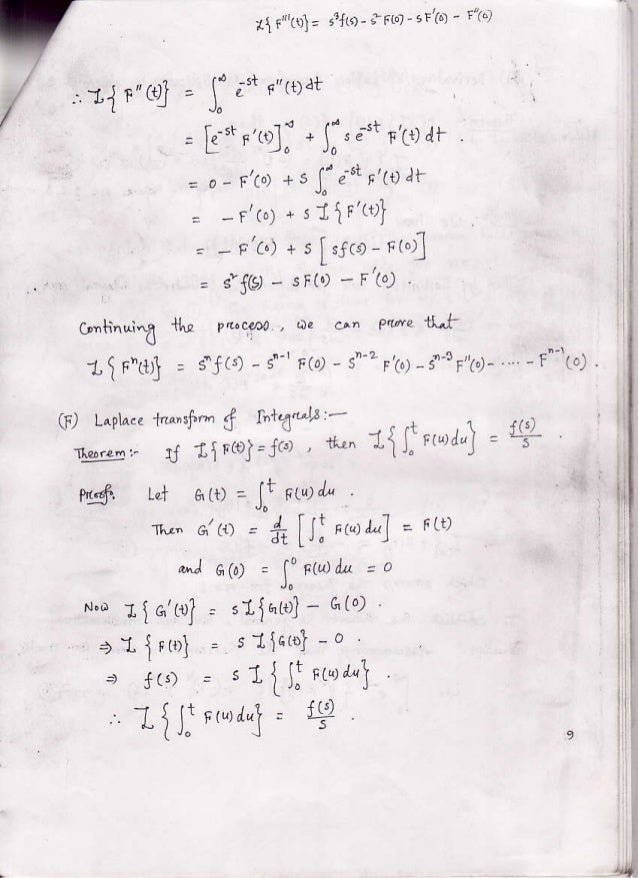 L{F'''(t)} = s³f(s) - s²F(0) - sF'(0) - F''(0)
∴ L{F''(t)} = ∫₀^∞ e^-st F''(t) dt
= [e^-st F'(t)]₀^∞ + ∫₀^∞ s e^-st F'(t) dt .
= 0 - F'(0) + s ∫₀^∞ e^-st F'(t) dt
= - F'(0) + s L{F'(t)}
= - F'(0) + s [sf(s) - F(0)]
= s² f(s) - sF(0) - F'(0)
Continuing the process, we can prove that
L{Fⁿ(t)} = sⁿf(s) - s^n-1 F(0) - s^n-2 F'(0) - s^n-3 F''(0) - ..... - F^n-1(0) .
(F) Laplace transform of Integrals :—
Theorem :- If L{F(t)} = f(s) , then L{∫₀^t F(u) du} = f(s)/s .
Proof. Let G(t) = ∫₀^t F(u) du .
Then G'(t) = d/dt [∫₀^t F(u) du] = F(t)
and G(0) = ∫₀^0 F(u) du = 0
Now L{G'(t)} = s L{G(t)} - G(0) .
⇒ L{F(t)} = s L{G(t)} - 0 .
⇒ f(s) = s L{∫₀^t F(u) du} .
∴ L{∫₀^t F(u) du} = f(s)/s .
9